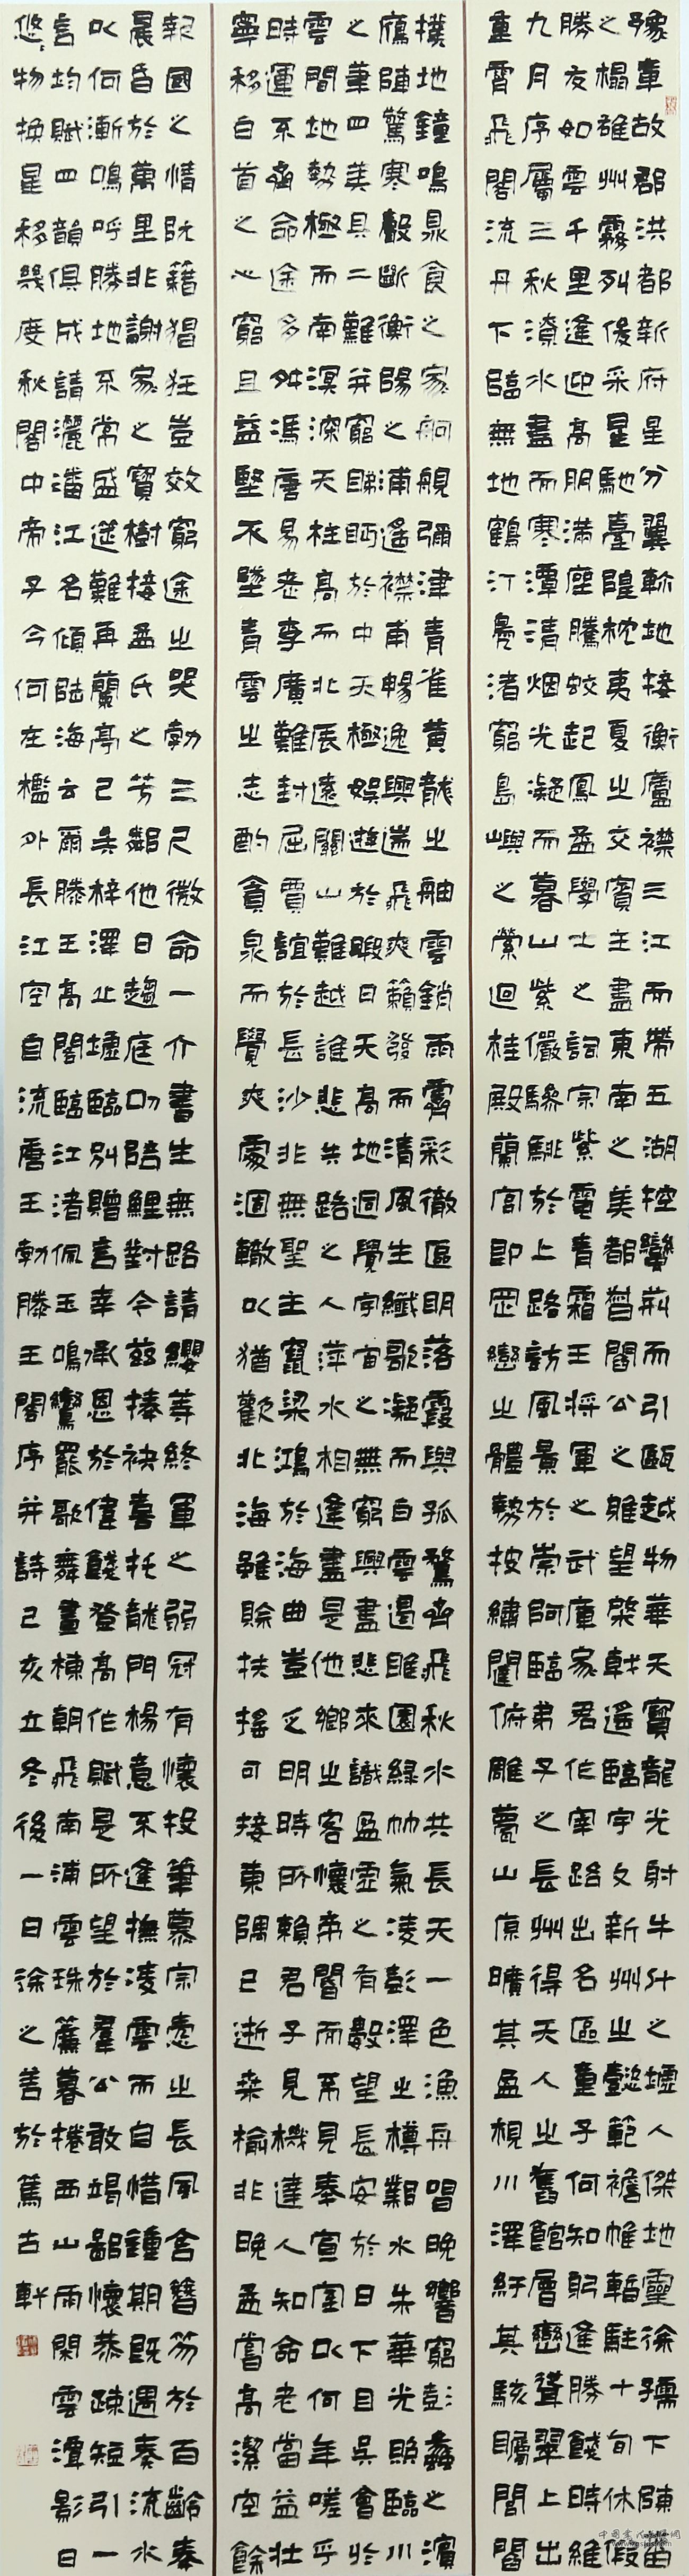 豫章故郡洪都新府星分翼軫地接衡廬襟三江而帶五湖控蠻荊而引甌越物華天寶龍光射牛斗之墟人傑地靈徐孺下陳蕃
之榻雄州霧列俊采星馳臺隍枕夷夏之交賓主盡東南之美都督閻公之雅望棨戟遙臨宇文新州之懿範襜帷暫駐十旬休假
勝友如雲千里逢迎高朋滿座騰蛟起鳳孟學士之詞宗紫電青霜王將軍之武庫家君作宰路出名區童子何知躬逢勝餞時維
九月序屬三秋潦水盡而寒潭清烟光凝而暮山紫儼驂騑於上路訪風景於崇阿臨弟子之長州得天人之舊館層巒聳翠上出
重霄飛閣流丹下臨無地鶴汀鳧渚窮島嶼之縈迴桂殿蘭宮即岡巒之體勢披繡闥俯雕甍山原曠其盈視川澤紆其駭矚閭閻
撲地鐘鳴鼎食之家舸艦彌津青雀黃龍之舳雲銷雨霽彩徹區明落霞與孤鶩齊飛秋水共長天一色漁舟唱晚響窮彭蠡之濱
鴈陣驚寒聲斷衡陽之浦遙襟甫暢逸興遄飛爽籟發而清風生纖歌凝而白雲遏睢園綠竹氣凌彭澤之樽鄴水朱華光照臨川
之筆四美具二難并窮睇眄於中天極娛遊於暇日天高地迥覺宇宙之無窮興盡悲來識盈虛之有數望長安於日下目吳會於
雲間地勢極而南溟深天柱高而北辰遠關山難越誰悲失路之人萍水相逢盡是他鄉之客懷帝閽而不見奉宣室以何年嗟乎
時運不齊命途多舛馮唐易老李廣難封屈賈誼於長沙非無聖主竄梁鴻於海曲豈乏明時所賴君子見機達人知命老當益壯
寧移白首之心窮且益堅不墜青雲之志酌貪泉而覺爽處涸轍以猶歡北海雖賒扶搖可接東隅已逝桑榆非晚孟嘗高潔空餘
報國之情阮籍猖狂豈效窮途之哭勃三尺微命一介書生無路請纓等終軍之弱冠有懷投筆慕宗愨之長風舍簪笏於百齡奉
晨昏於萬里非謝家之寶樹接孟氏之芳鄰他日趨庭叨陪鯉對今茲捧袂喜托龍門楊意不逢撫凌雲而自惜鍾期既遇奏流水
以何漸鳴呼勝地不常盛筵難再蘭亭已矣梓澤丘墟臨別贈言幸承恩於偉餞登高作賦是所望於羣公敢竭鄙懷恭疏短引一
言均賦四韻俱成請灑潘江各傾陸海云爾滕王高閣臨江渚佩玉鳴鸞罷歌舞畫棟朝飛南浦雲珠簾暮捲西山雨閑雲潭影日
悠悠物換星移幾度秋閣中帝子今何在檻外長江空自流唐王勃滕王閣序并詩己亥立冬後一日徐之善於篤古軒